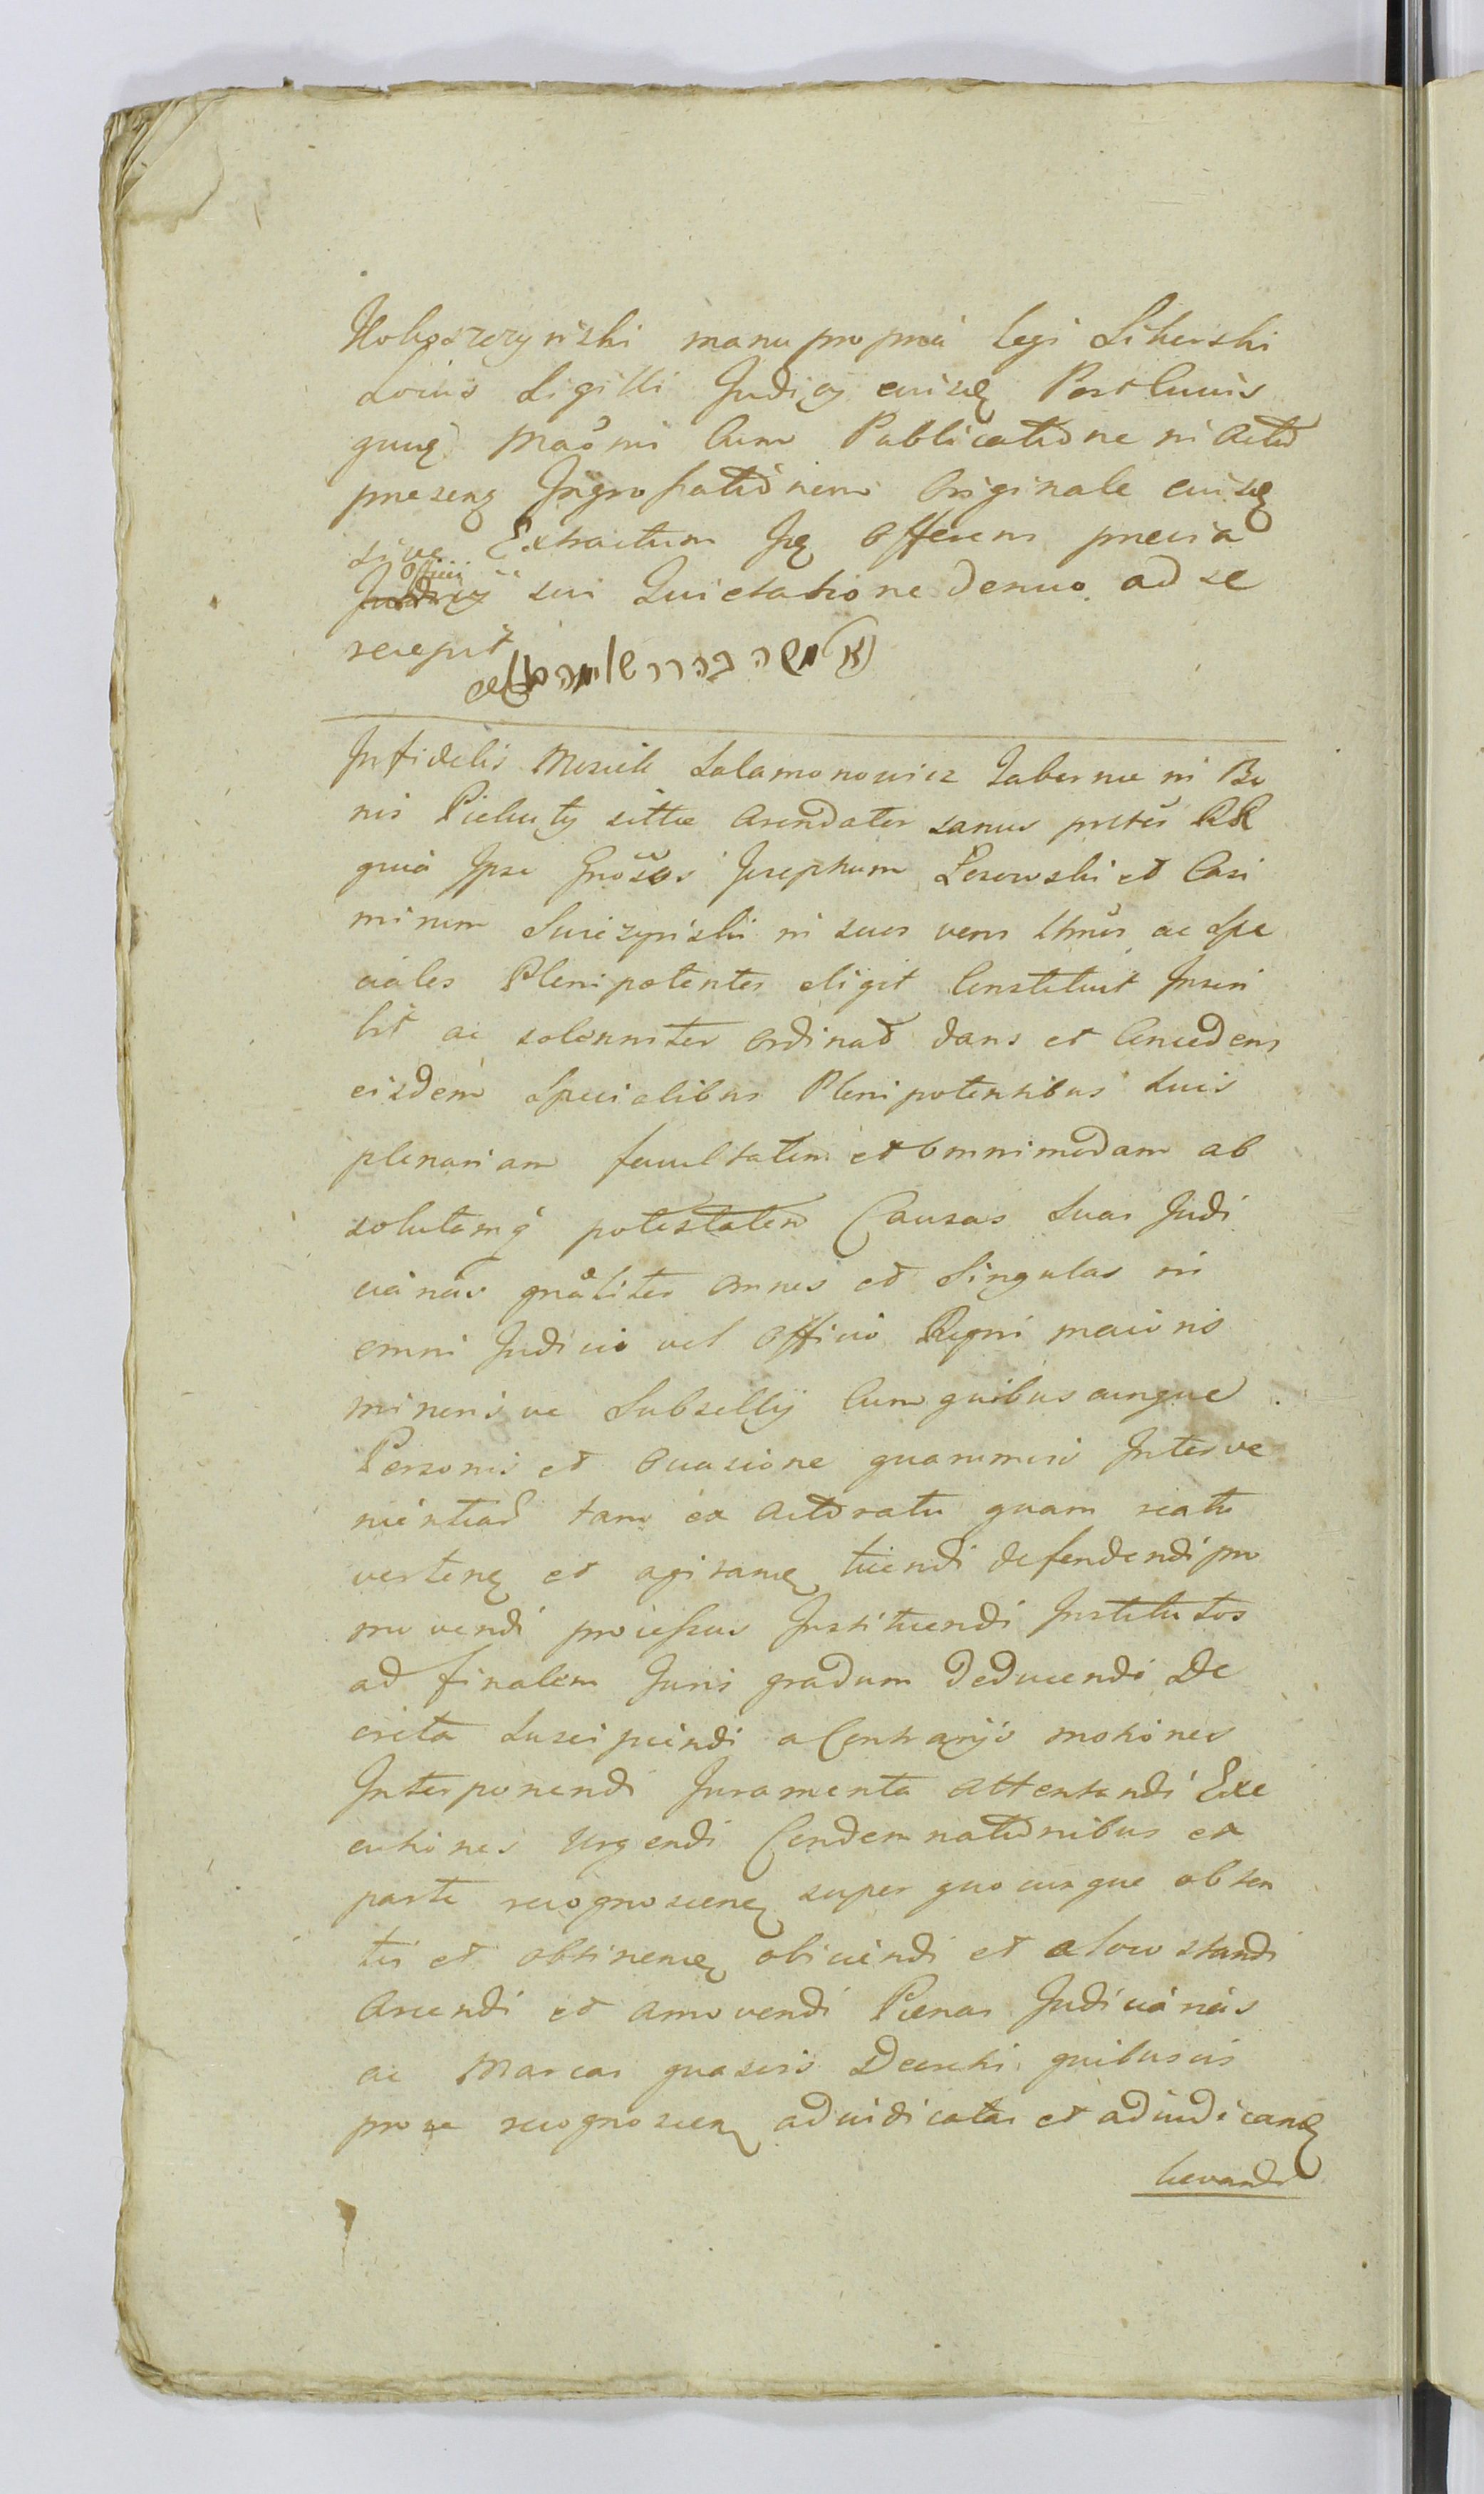 manu propria legi Sikerski
Locus Sigilli Judicij eiusdꝫ Post cuius
quidꝫ Cum Publicatione in Acta
presenꝫ Ingrossationem Originale eiusdꝫ
sive Extractum Idꝫ Offerens previa
Officii sui Quietatione denuo ad se
recepit
משה בהרר שלמה
Infidelis Mosiek Salamonowicz Tabernæ in Bo
nis Pieluty sittæ Arendator sanus RR
quia Ipse Gnosos Josephum Łosowski et Casi
mirum in suos veros ac Spe
ciales Plenipotentes eligit Constituit Inscri
bit ac solenniter Ordinat dans et Concedens
eisdem Specialibus Plenipotentibus Suis
plenariam facultatem et omnimodam ab
solutamq̃ potestatem Causas Suas Judi
ciarias gnãliter Omnes et Singulas in
omni Judicio vel Officio Regni maioris
minorisve Subsellij Cum quibuscunque
Personis et Occasione quarumvis Interve
nientiar tam ex Actoratu quam reatu
vertenꝫ et agitandꝫ tuendi defendendi pro
movendi processus Instituendi Institutos
ad finalem Juris gradum Deducendi De
creta Suscipiendi a Contrarijs motiones
Interponendi Juramenta Attentandi Exe
cutiones Urgendi Condemnationibus ex
parte recognoscenꝫ super quocunque obten
tis et obtinendꝫ obiiciendi et a loco standi
Arcendi et amovendi Pœnas Judiciarias
ac Marcas quasvis Decreti quibusvis
pro se recognoscenꝫ adiudicatas et adiudicandꝫ
levandi